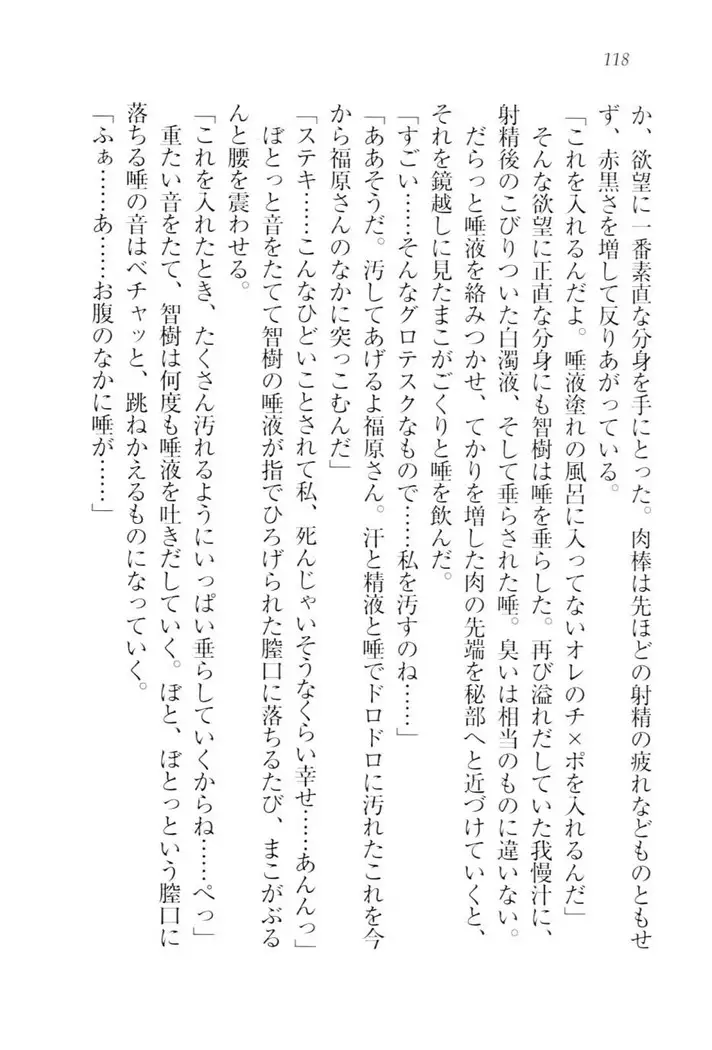 118
か、欲望に一番素直な分身を手にとった。肉棒は先ほどの射精の疲れなどものともせ
ず、赤黒さを増して反りあがっている。
「これを入れるんだよ。唾液塗れの風呂に入ってないオレのチ×ポを入れるんだ」
そんな欲望に正直な分身にも智樹は唾を垂らした。再び溢れだしていた我慢汁に、
射精後のこびりついた白濁液、そして垂らされた唾。臭いは相当のものに違いない。
だらっと唾液を絡みつかせ、てかりを増した肉の先端を秘部へと近づけていくと、
それを鏡越しに見たまこがごくりと唾を飲んだ。
「すごい……そんなグロテスクなもので……私を汚すのね……」
「ああそうだ。汚してあげるよ福原さん。汗と精液と唾でドロドロに汚れたこれを今
から福原さんのなかに突っこむんだ」
「ステキ……こんなひどいことされて私、死んじゃいそうなくらい幸せ……あんんっ」
ぼとっと音をたてて智樹の唾液が指でひろげられた膣口に落ちるたび、まこがぶる
んと腰を震わせる。
「これを入れたとき、たくさん汚れるようにいっぱい垂らしていくからね……ぺっ」
重たい音をたて、智樹は何度も唾液を吐きだしていく。ぼと、ぼとっという膣口に
落ちる唾の音はベチャッと、跳ねかえるものになっていく。
「ふぁ……あ……お腹のなかに唾が……」